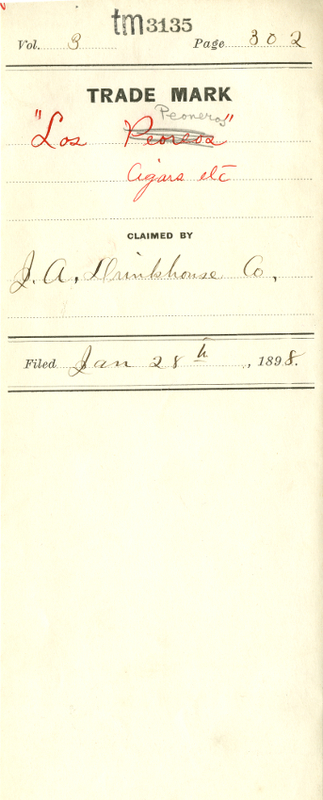 tm3135
Vol. 3 Page 302
TRADE MARK
Peoneros
"Los Peoreos"
Cigars etc
CLAIMED BY
J. A. Drinkhouse Co.
Filed Jan 28th, 1898.